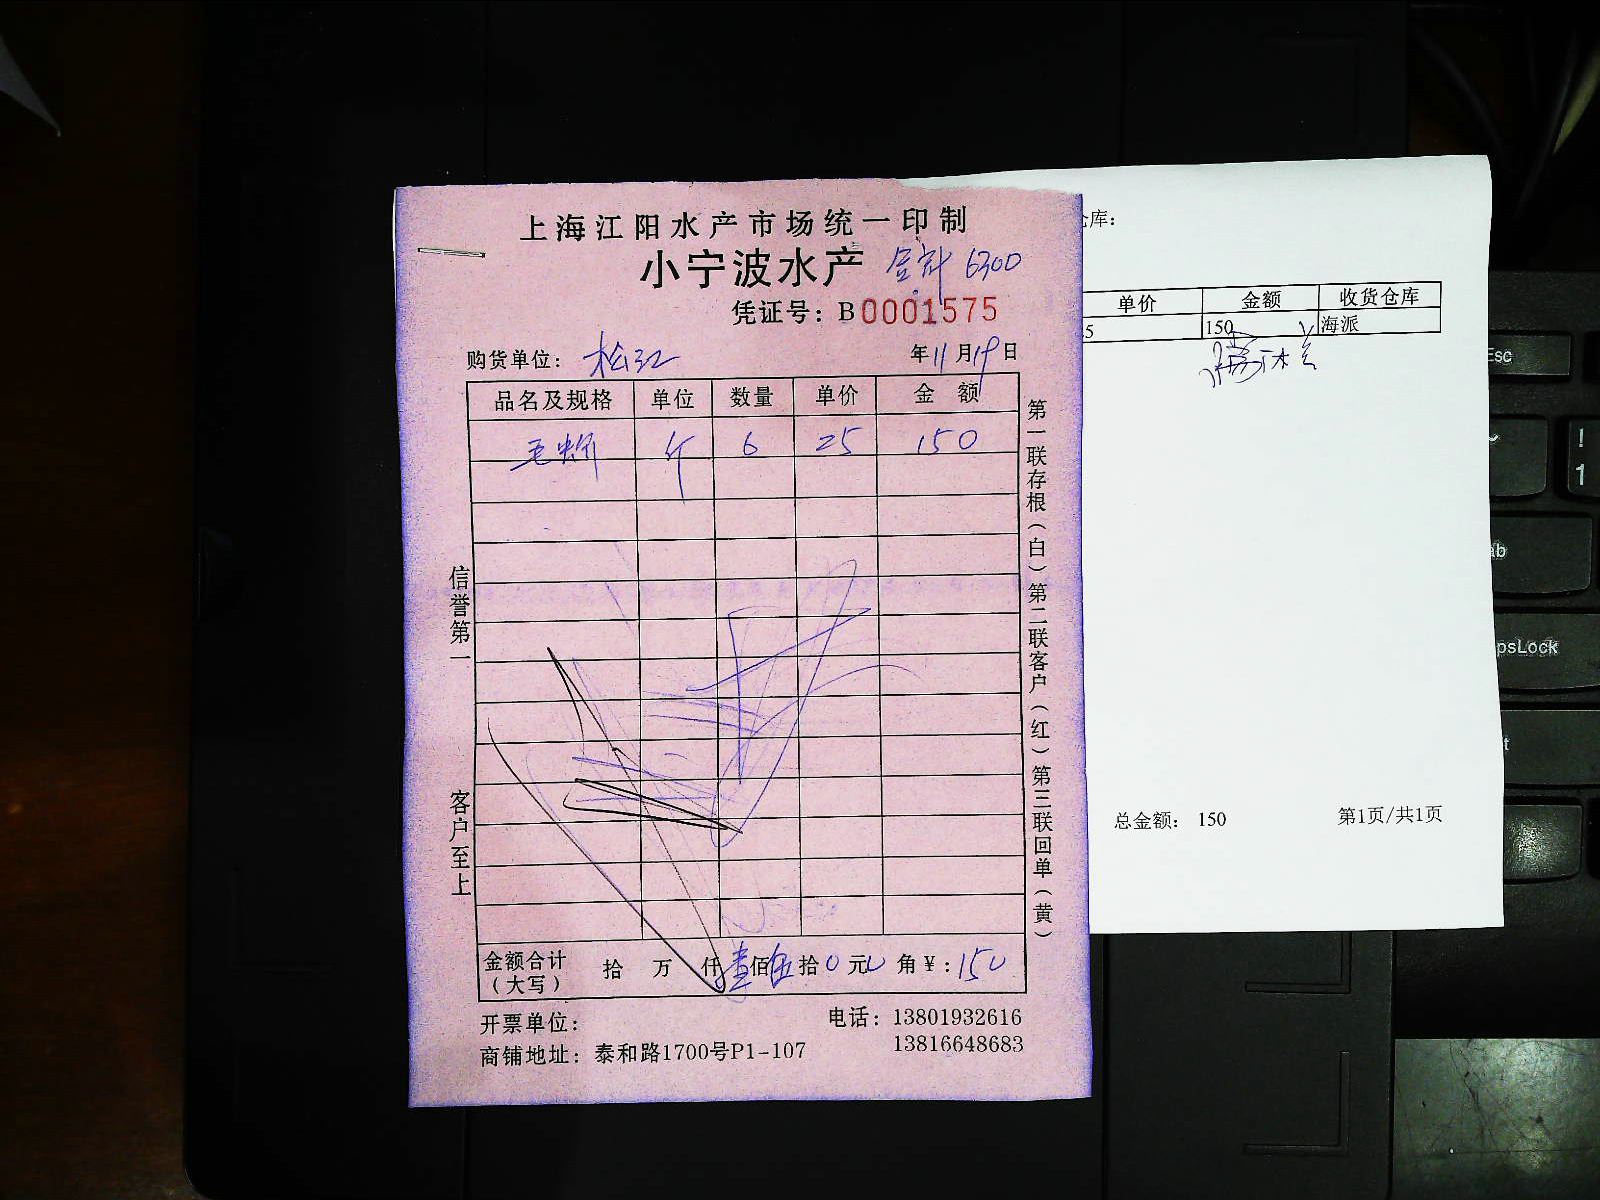 上海江阳水产市场统一印制
小宁波水产 合计 6300
凭证号：B0001575
购货单位：松江 年11月19日
品名及规格 单位 数量 单价 金额
毛蚶 斤 6 25 150
信誉第一
客户至上
第一联存根（白）第二联客户（红）第三联回单（黄）
金额合计（大写） 拾 万 仟壹佰伍拾0元0角¥:150
开票单位：
电话：13801932616
13816648683
商铺地址：泰和路1700号P1-107
仓库：
单价 金额 收货仓库
150 海派
总金额： 150
第1页/共1页
Esc
!
1